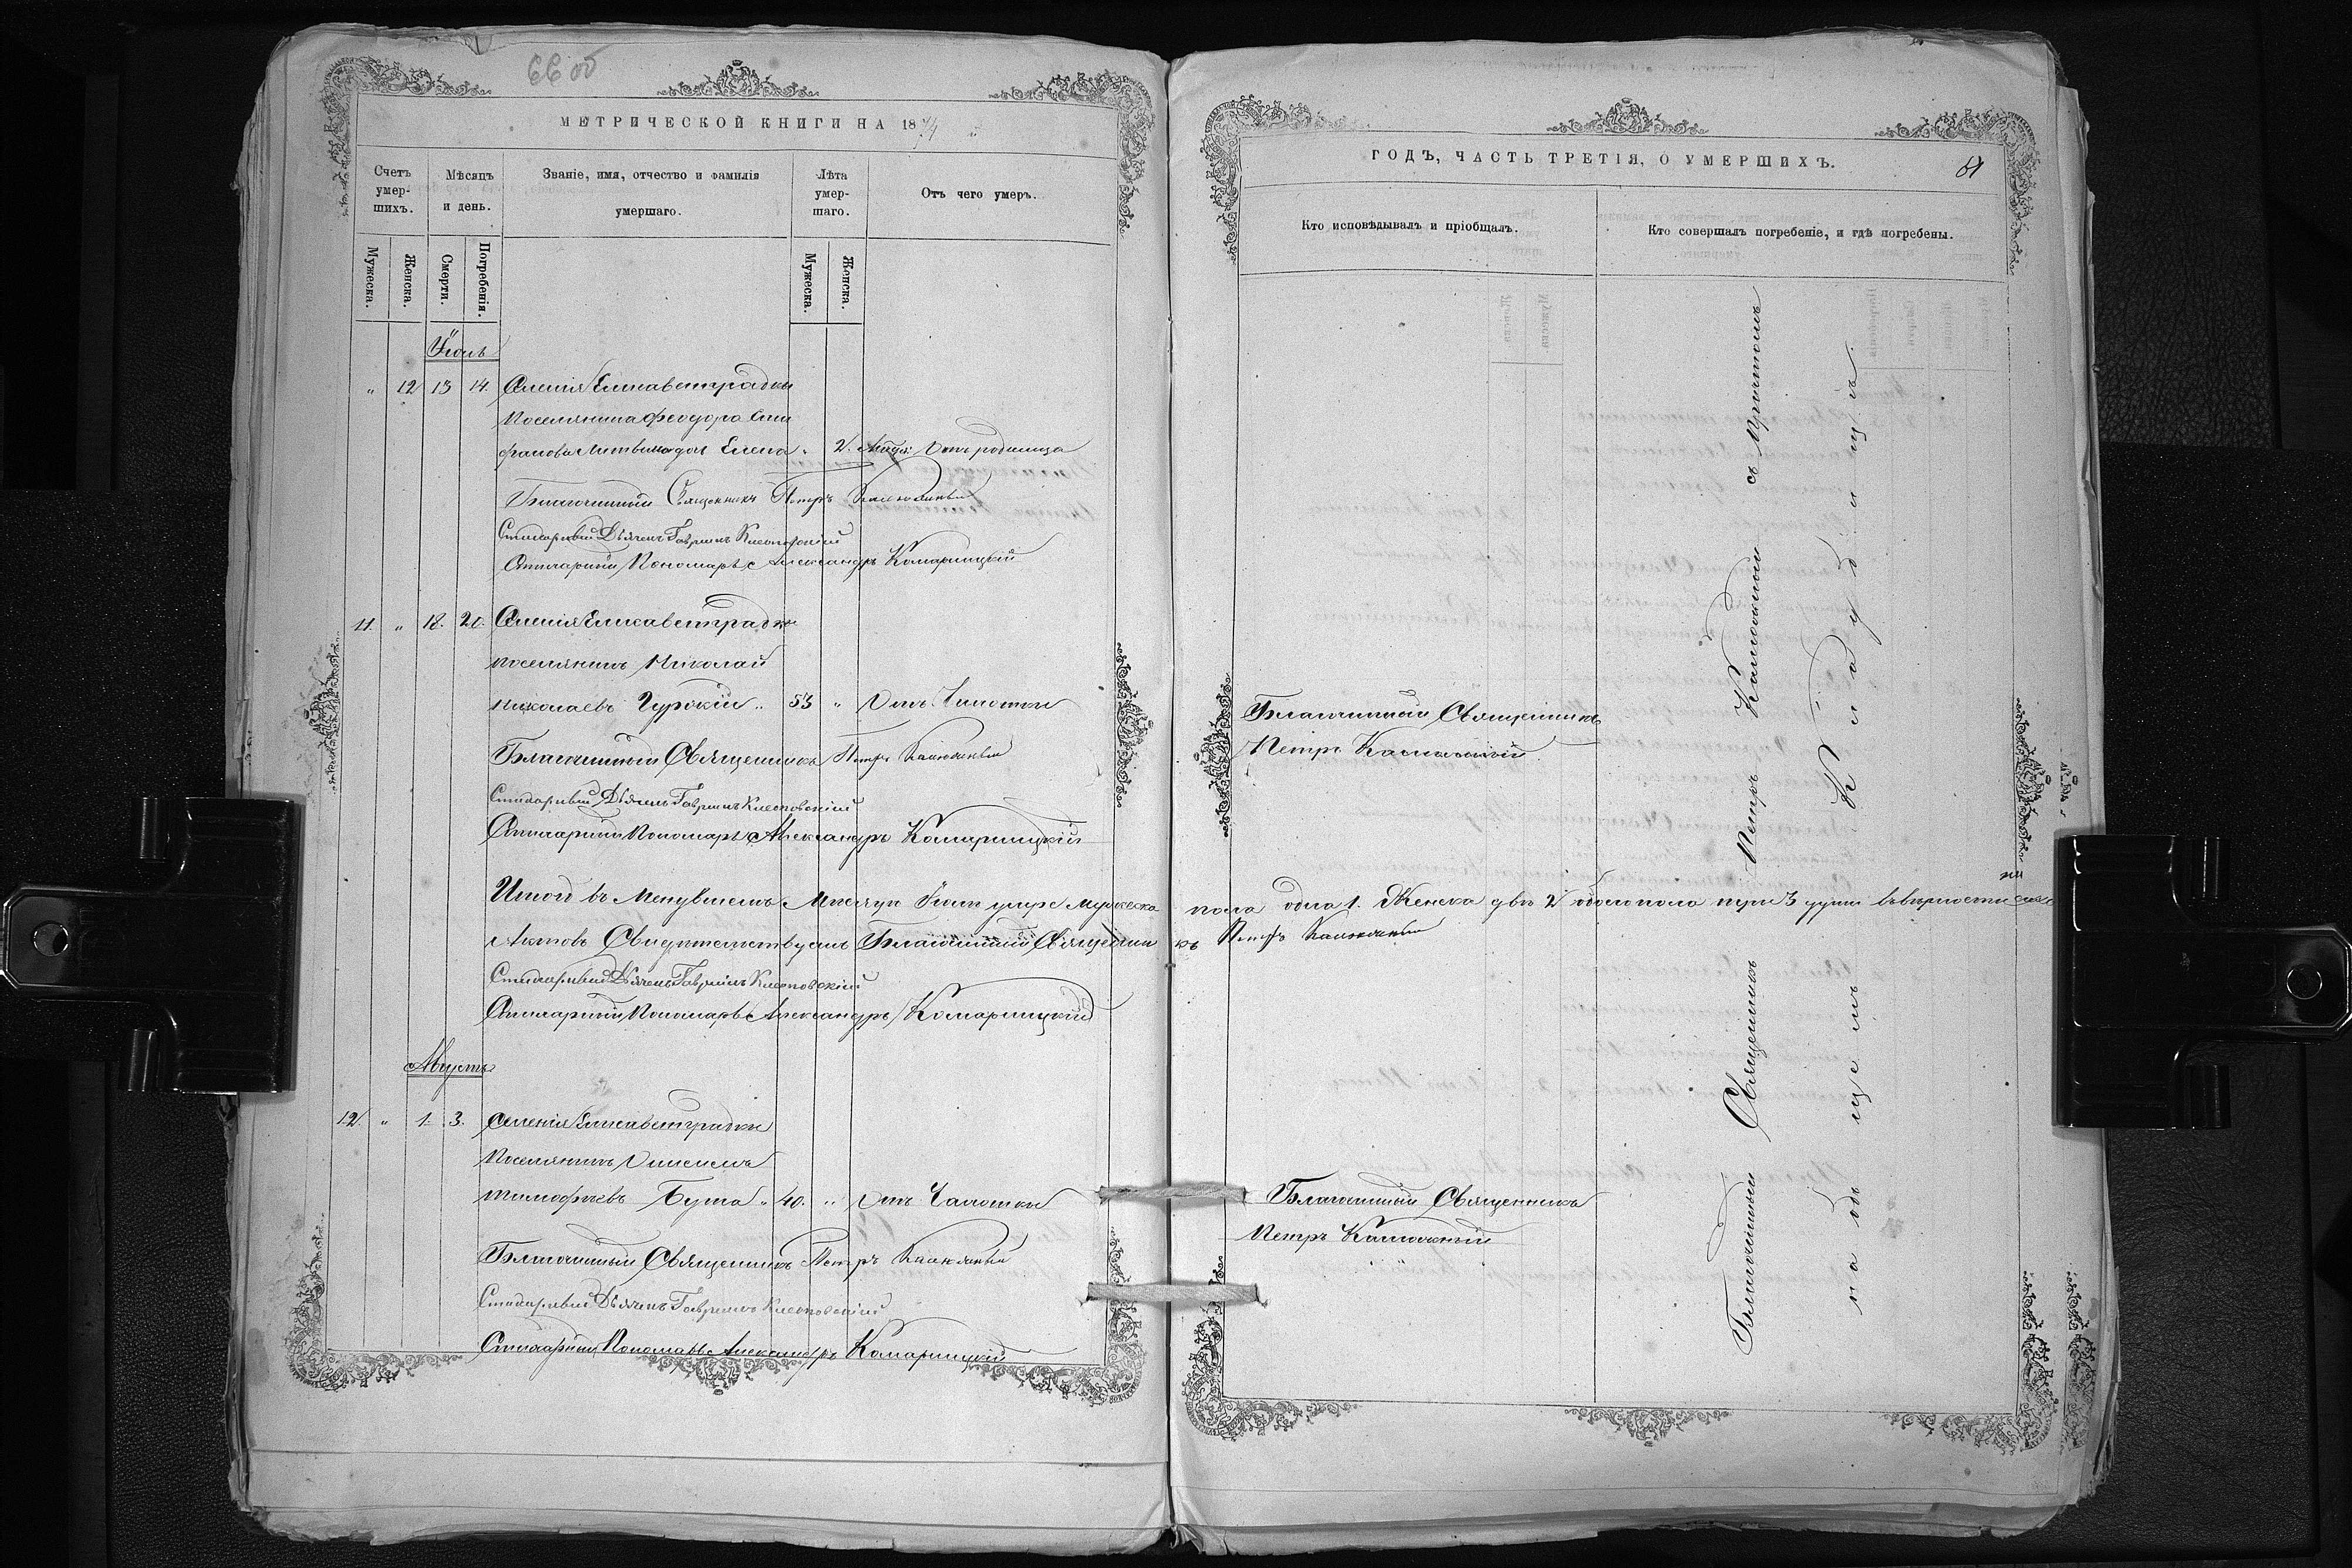 66 об
МЕТРИЧЕСКОЙ КНИГИ НА 1874
Счетъ умер-шихъ.
Мѣсяцъ и день.
Званіе, имя, отчество и фамилія умершаго.
Лѣта умер-шаго.
Отъ чего умеръ.
Мужеска.
Женска.
Смерти.
Погребенія.
Мужеска.
Женска.
Іюль
" 12 13 14. Селенія Елисаветградки
Поселянина Феодора
дочь Елена " 2. Отъ родимца
Благочинный Священникъ Петръ
Стихарный Дьячекъ Гавріилъ
Стихарный Пономарь Александръ Комарницкій
11. " 18. 20. Селенія Елисаветградки
поселянинъ Николай
Николаевъ Гурскій " 53 " Отъ Чахотки
Благочинный Священникъ Петръ
Стихарный Дьячекъ Гавріилъ
Стихарный Пономарь Александръ Комарницкій
Итого въ Минувшемъ Мѣсяцѣ Іюлѣ умре мужеска
Актовъ Свидѣтельствуемъ Благочинный Священни
Стихарный Дьячекъ Гавріилъ
Стихарный Пономарь Александръ Комарницкій
Августъ
12. " 1. 3. Селенія Елисаветградки
Поселянинъ
Тимофеевъ Бута " 40. " Отъ Чахотки
Благочинный Священникъ Петръ
Стихарный Дьячекъ Гавріилъ
Стихарный Пономарь Александръ Комарницкій
ГОДЪ, ЧАСТЬ ТРЕТІЯ, О УМЕРШИХЪ.
Кто исповѣдывалъ и пріобщалъ.
Кто совершалъ погребеніе, и гдѣ погребены.
Благочинный Священникъ
Петръ
пола одна 1. Женска двѣ 2 обоего пола три 3 души въ вѣрности сихъ
къ Петръ
Благочинный Священникъ
Петръ
Благочинный Священникъ Петръ съ Причтомъ
на общемъ Кладбищѣ.